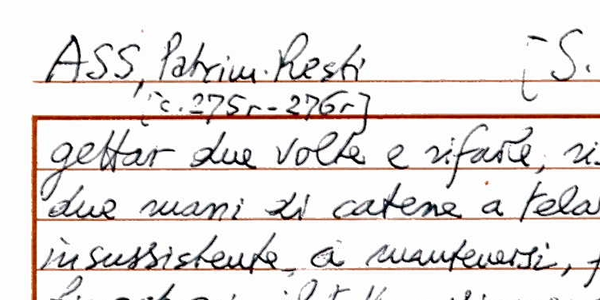 ASS, Patrim. Resti [S.
[c. 275r - 276r]
gettar due volte e rifare, ri
due mani di catene a tela
insussistente, a mantenersi,